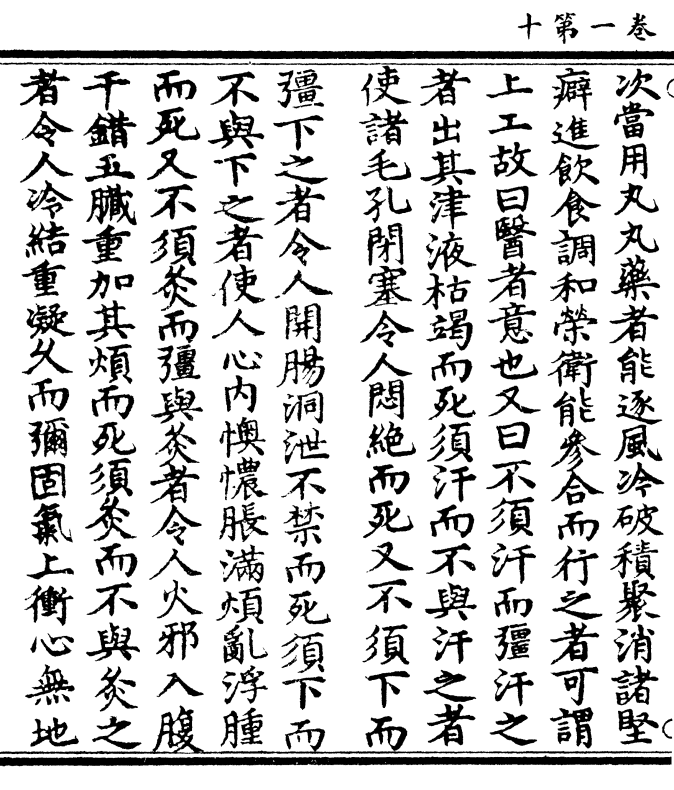 十第一卷
次當用丸丸藥者能逐風冷破積聚消諸堅
癖進飲食調和榮衛能參合而行之者可謂
上工故曰醫者意也又曰不須汗而彊汗之
者出其津液枯竭而死須汗而不與汗之者
使諸毛孔閉塞令人悶絶而死又不須下而
彊下之者令人開腸洞泄不禁而死須下而
不與下之者使人心内懊憹脹滿煩亂浮腫
而死又不須灸而彊與灸者令人火邪入腹
干錯五臟重加其煩而死須灸而不與灸之
者令人冷結重凝久而彌固氣上衝心無地